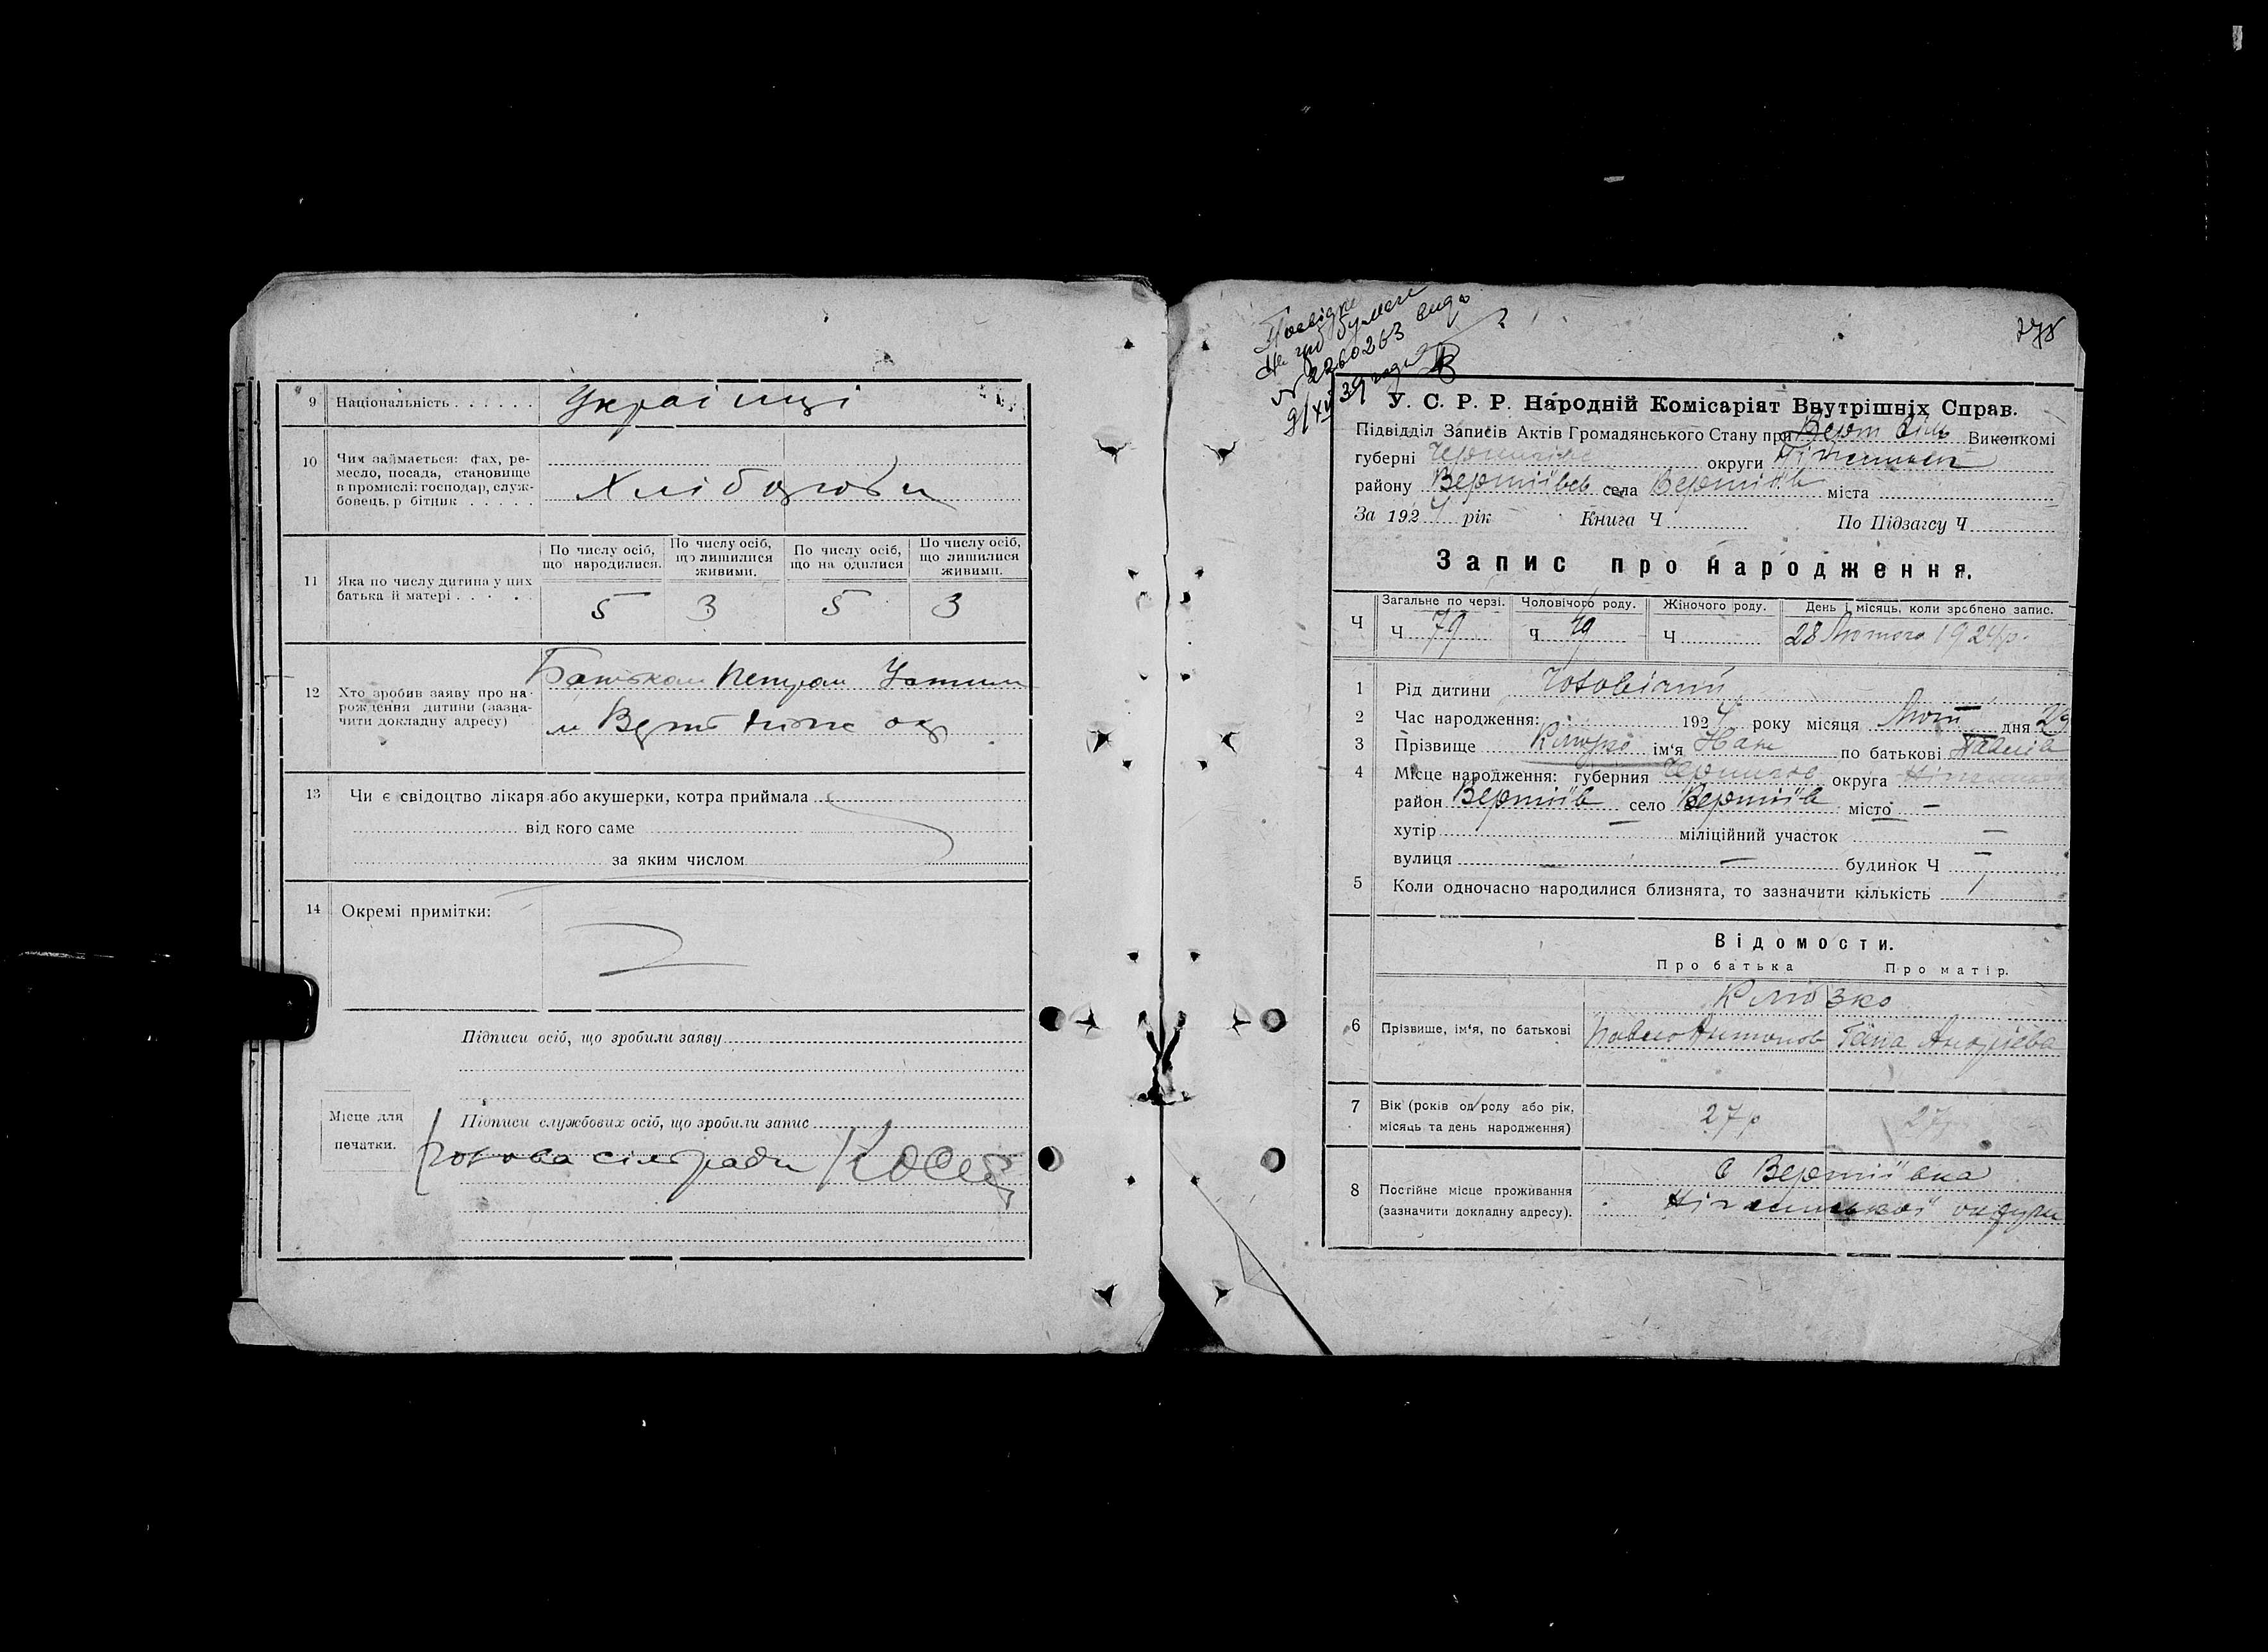 9 Національність . . . . . . Українці
10 Чим займається: фах, ре-
месло, посада, становище
в промислі: господар, служ-
бовець, р бітник . . . . . Хлібороби
11 Яка по числу дитина у цих
батька й матері . . . . .
По числу осіб, що народилися.
По числу осіб, що лишилися живими.
По числу осіб, що на одилися
По числу осіб, що лишилися живими.
5 3 5 3
12 Хто зробив заяву про на-
рождення дитини (зазна-
чити докладну адресу)
Батьком
13 Чи є свідоцтво лікаря або акушерки, котра приймала
від кого саме
за яким числом
14 Окремі примітки:
Підписи осіб, що зробили заяву
Місце для
печатки.
Підписи службових осіб, що зробили запис
голова сільради
278
№ 2260263
У. С. Р. Р. Народній Комісаріят Внутрішніх Справ.
Підвідділ Записів Актів Громадянського Стану при Верт Виконкомі
губерні округи
району Вертіївсв села Вертіїв міста
За 1924 рік Книга Ч По Підзагсу Ч
Запис про народження.
Загальне по черзі. Чоловічого роду. Жіночого роду. День і місяць, коли зроблено запис.
Ч Ч 79 Ч Ч 28 Лютого 1924р.
1 Рід дитини Чоловічий
2 Час народження: 1924 року місяця Лют дня
3 Прізвище ім'я по батькові Павлів
4 Місце народження: губерния Чернигов округа
район Вертіїв село Вертіїв місто —
хутір — міліційний участок —
вулиця — — будинок Ч —
5 Коли одночасно народилися близнята, то зазначити кількість
Відомости.
Про батька Про матір.
Клюзко
6 Прізвище, ім'я, по батькові Павло Антонов Гана Андріева
7 Вік (років од роду або рік,
місяць та день народження) 27р 27р
8 Постійне місце проживання
(зазначити докладну адресу).
с Вертіївка
Ніженської округи